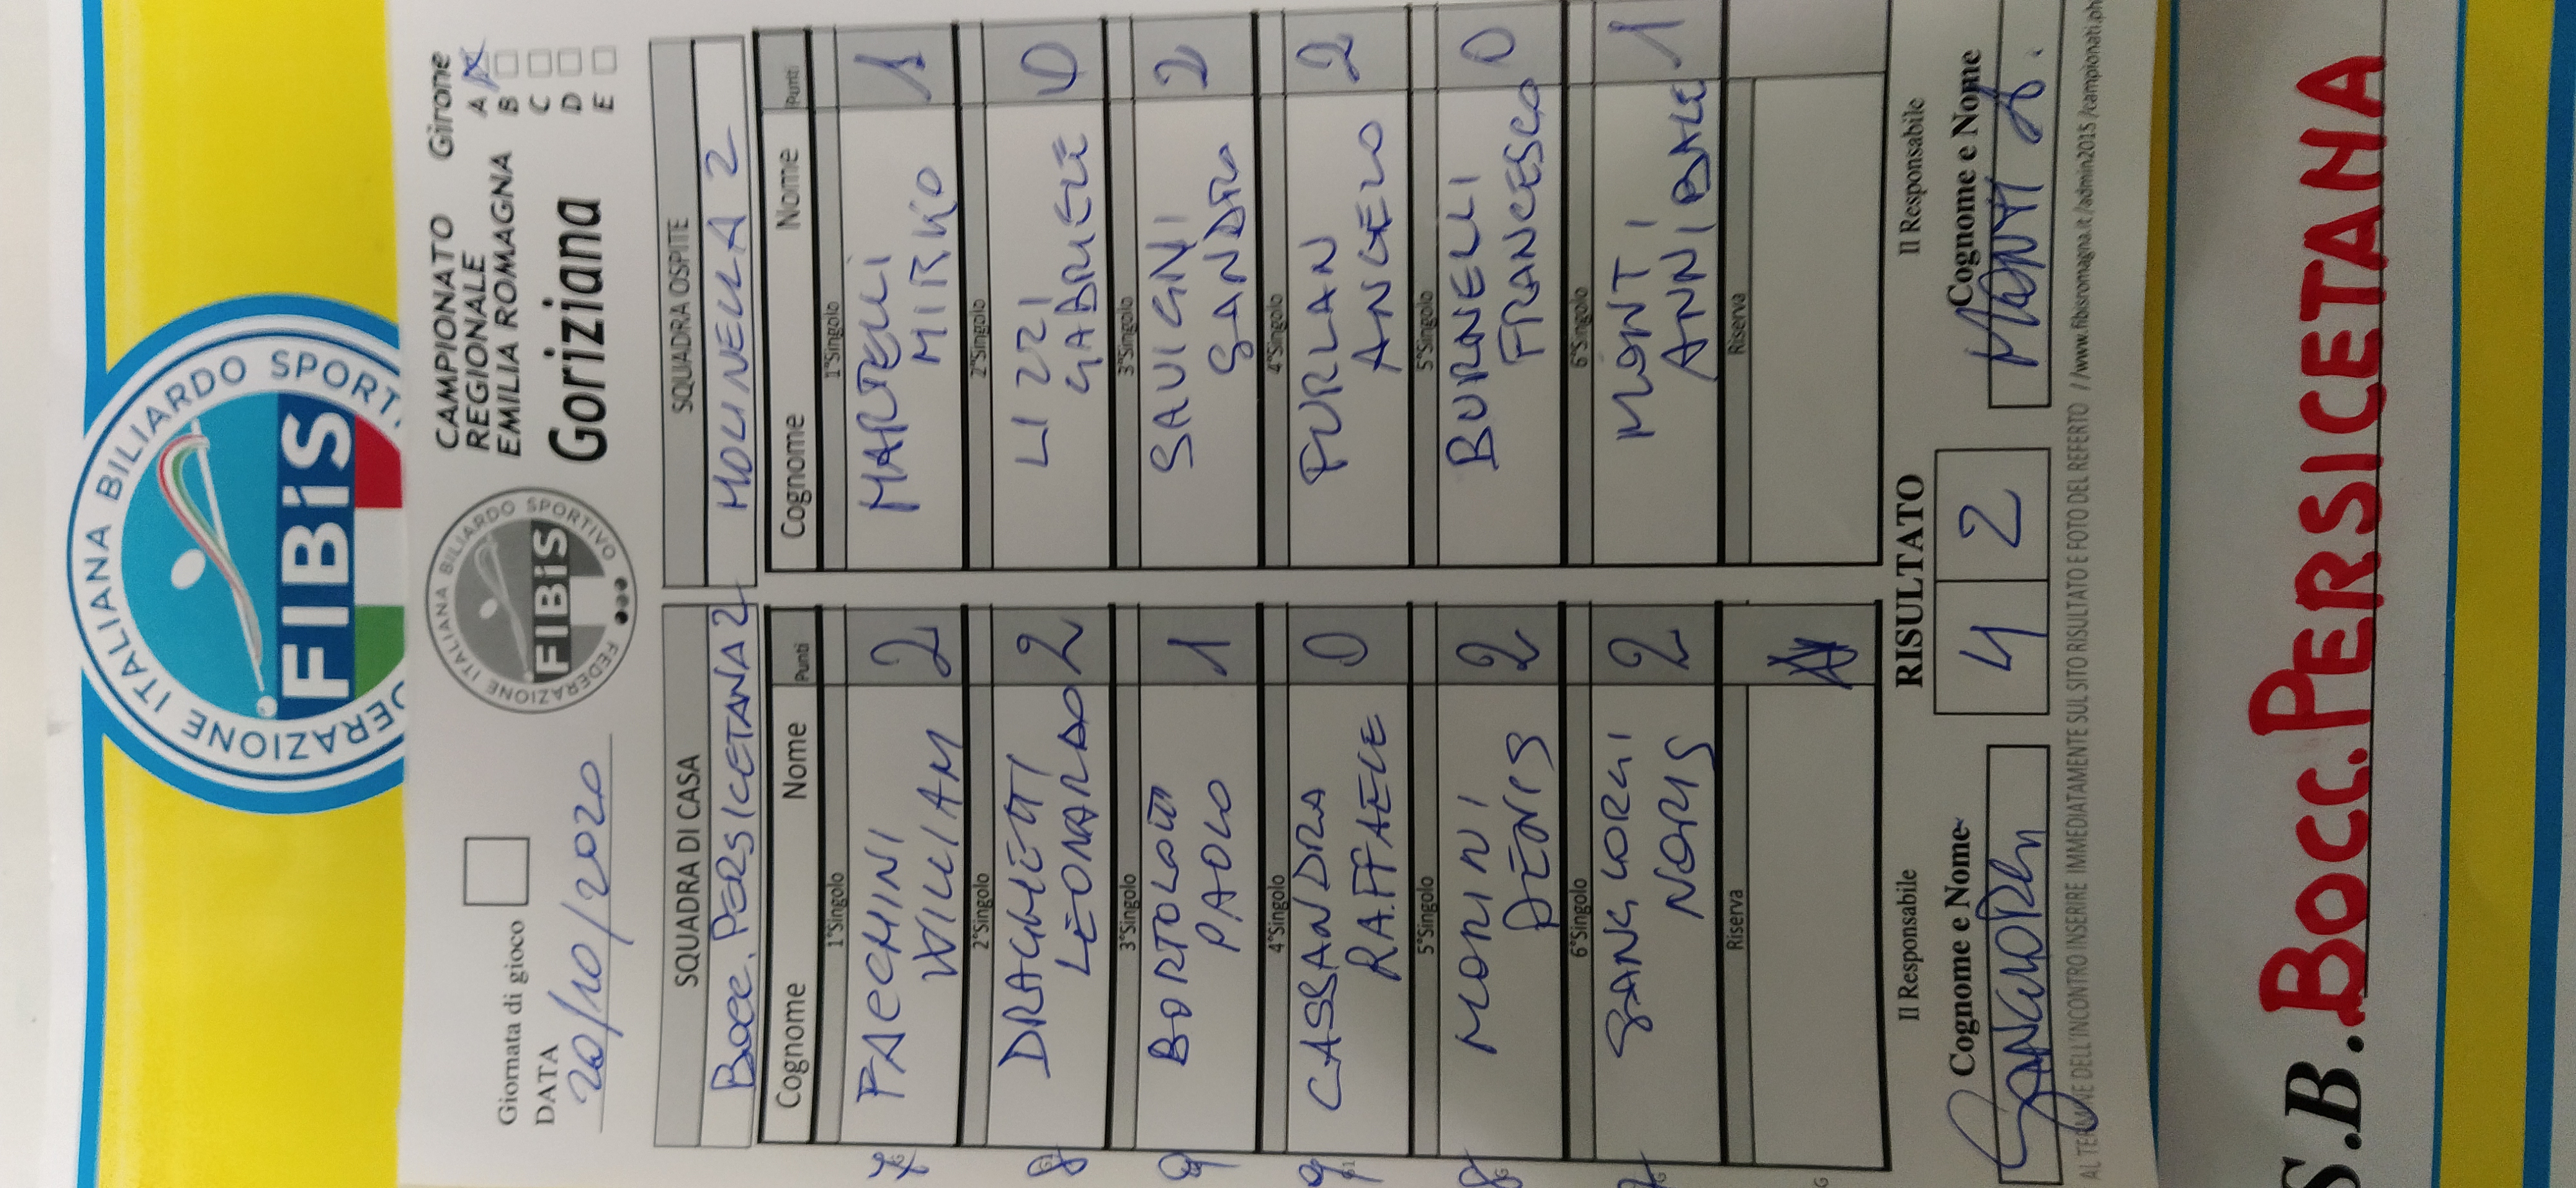 FEDERAZIONE ITALIANA BILIARDO SPORT
FIBiS
Giornata di gioco
DATA
20/10/2020
FEDERAZIONE ITALIANA BILIARDO SPORTIVO
FIBiS
CAMPIONATO
REGIONALE
EMILIA ROMAGNA
Goriziana
Girone
A X
B
C
D
E
SQUADRA DI CASA
SQUADRA OSPITE
Bocc. PERSICETANA 2
MOLINELLA 2
Cognome Nome Punti
Cognome Nome Punti
1°Singolo
1°Singolo
7 FACCHINI
WILLIAM 2
MARTELLI
MIRKO 1
2°Singolo
2°Singolo
8 DRAGHETTI
LEONARDO 2
LIZZI
GABRIELE 0
3°Singolo
3°Singolo
9 BORTOLOTTI
PAOLO 1
SAVIGNI
SANDRO 2
4°Singolo
4°Singolo
9 CASSANDRA
RAFFAELE 0
FURLAN
ANGELO 2
5°Singolo
5°Singolo
8 MORINI
DENIS 2
BURNELLI
FRANCESCO 0
6°Singolo
6°Singolo
7 SANGIORGI
NORIS 2
MONTI
ANNIBALE 1
Riserva
Riserva
Il Responsabile
RISULTATO
Il Responsabile
Cognome e Nome
4 2
Cognome e Nome
MONTI A.
AL TERMINE DELL'INCONTRO INSERIRE IMMEDIATAMENTE SUL SITO RISULTATO E FOTO DEL REFERTO //www.fibisromagna.it/admin2015/campionati.ph
S.B. BOCC. PERSICETANA